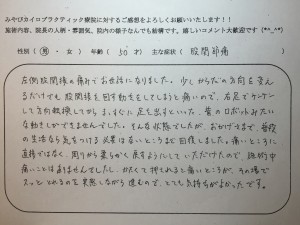 みやびカイロプラクティック療院に対するご感想をよろしくお願いいたします!!
施術内容、院長の人柄・雰囲気、院内の様子なんでも結構です。嬉しいコメント大歓迎です(*^_^*)
性別(男・女) 年齢( 50才 ) 主な症状( 股関節痛 )
左側股関節の痛みでお世話になりました。少しからだの方向を変え
るだけでも股関節を回す動きをしてしまうと痛いので、右足でケンケン
して方向転換してから、まっすぐに足を出すといった、昔のロボットみたい
な動きしかできませんでした。そんな状態でしたが、おかげさまで、普段
の生活なら気をつける必要はないところまで回復しました。痛いところに
直接ではなく、周りから柔らかく戻すようにしていただけたので、施術中
痛いことはありませんでしたし、かたくて押されると痛いところが、その場で
スッととれるのを実感しながら進むので、とても気持ちがよかったです。